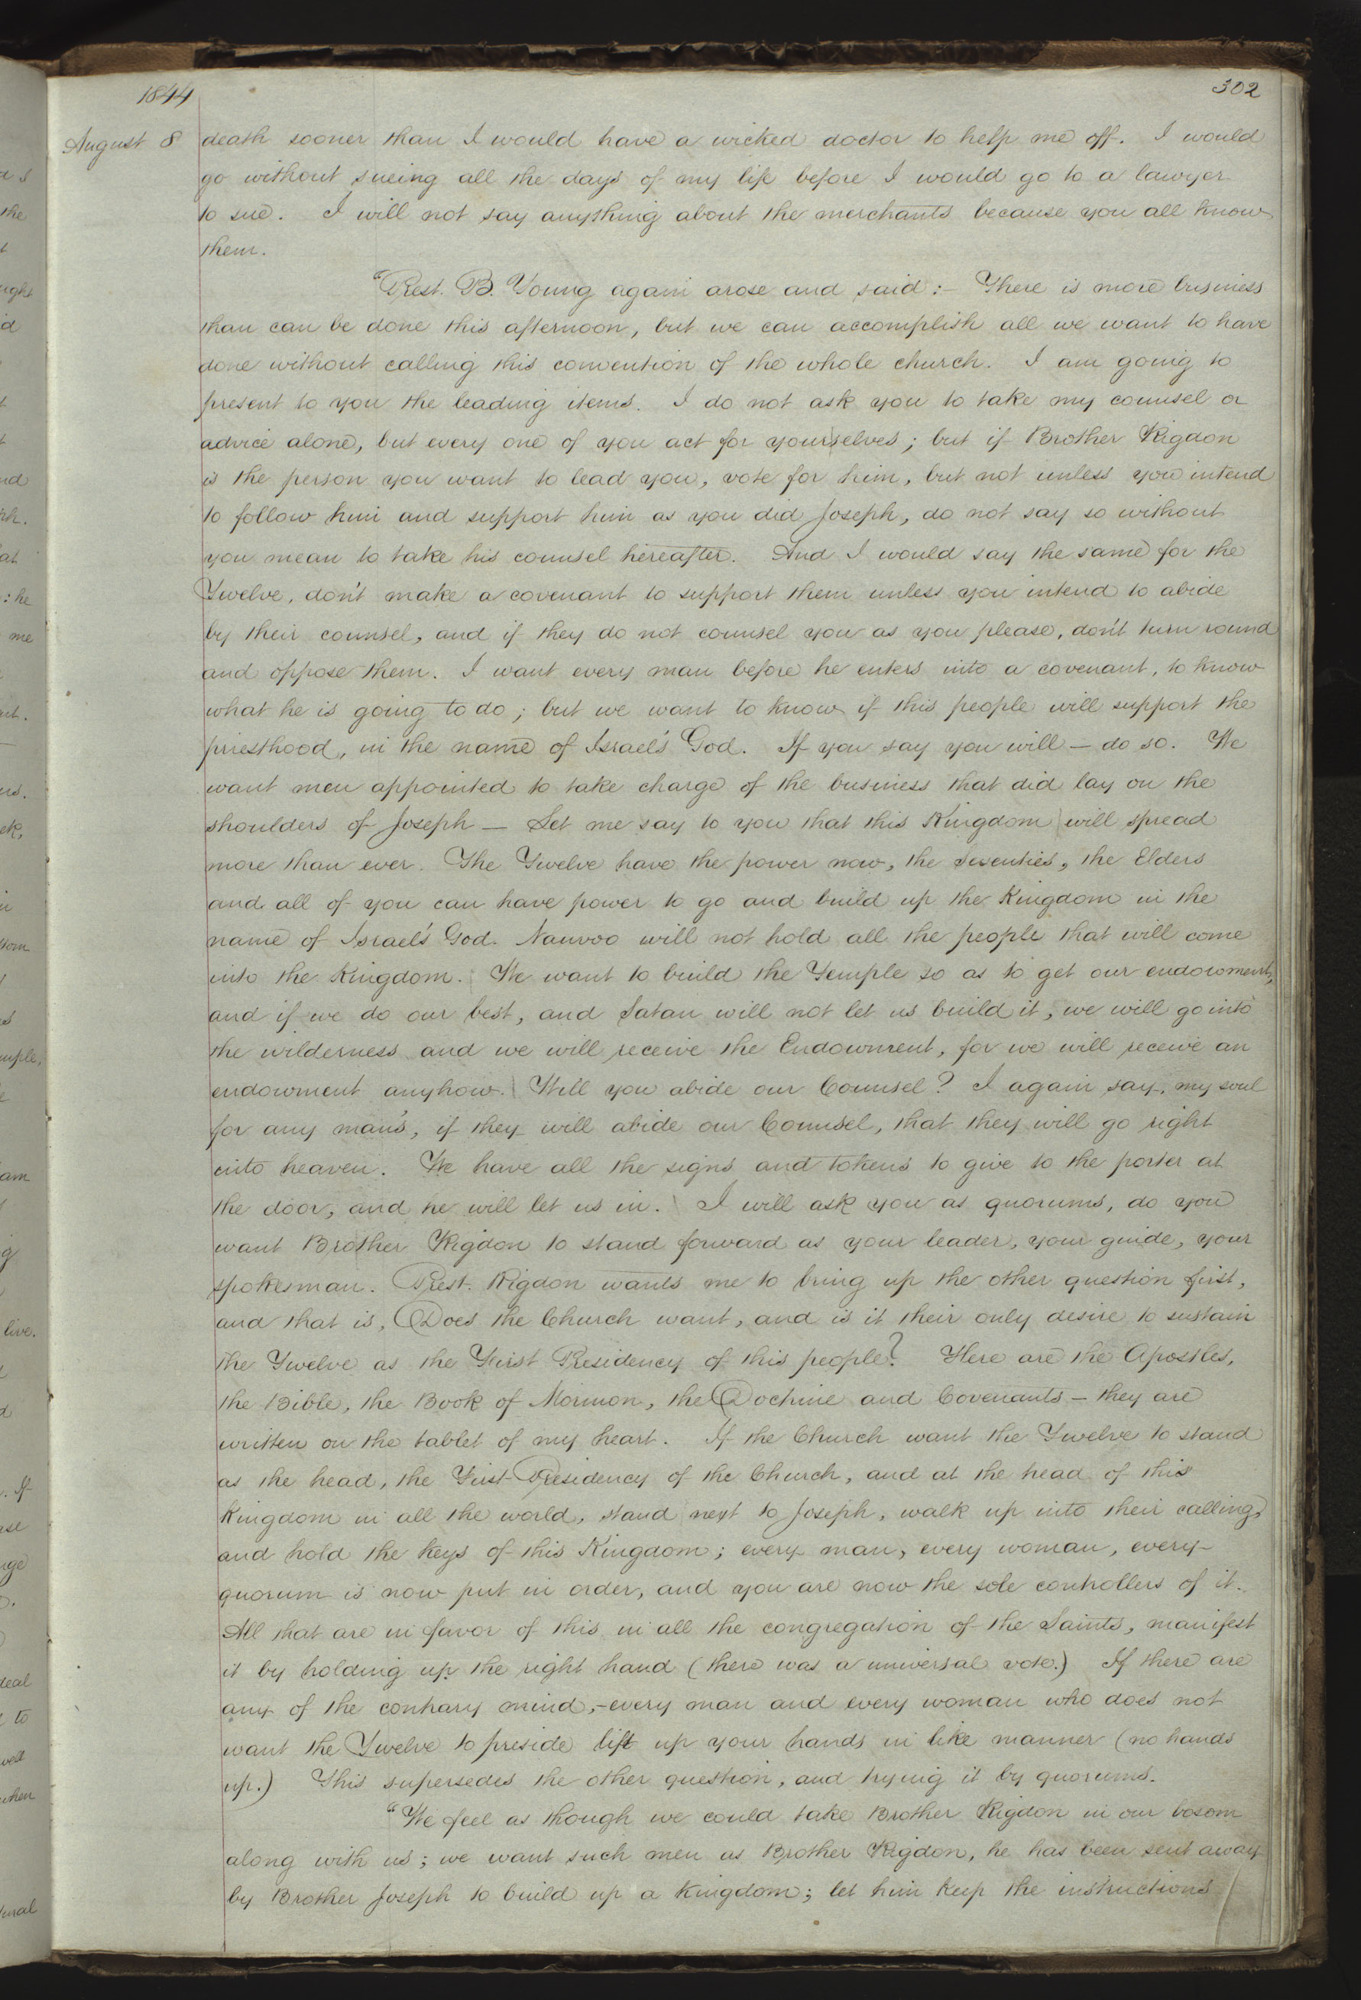 1844
302
August 8 death sooner than I would have a wicked doctor to help me off. I would
go without sueing all the days of my life before I would go to a lawyer
to sue. I will not say anything about the merchants because you all know
them.
"Prest. B. Young again arose and said:- There is more business
than can be done this afternoon, but we can accomplish all we want to have
done without calling this convention of the whole church. I am going to
present to you the leading items. I do not ask you to take my counsel or
advice alone, but every one of you act for yourselves; but if Brother Rigdon
is the person you want to lead you, vote for him, but not unless you intend
to follow him and support him as you did Joseph, do not say so without
you mean to take his counsel hereafter. And I would say the same for the
Twelve, don't make a covenant to support them unless you intend to abide
by their counsel, and if they do not counsel you as you please, don't turn round
and oppose them. I want every man before he enters into a covenant, to know
what he is going to do; but we want to know if this people will support the
priesthood, in the name of Israel's God. If you say you will – do so. We
want men appointed to take charge of the business that did lay on the
shoulders of Joseph – Let me say to you that this Kingdom will spread
more than ever. The Twelve have the power now, the seventies, the Elders
and all of you can have power to go and build up the Kingdom in the
name of Israel's God. Nauvoo will not hold all the people that will come
into the Kingdom. We want to build the Temple so as to get our endowment,
and if we do our best, and Satan will not let us build it, we will go into
the wilderness and we will receive the Endowment, for we will receive an
endowment anyhow. Will you abide our Counsel? I again say, my soul
for any man's, if they will abide our Counsel, that they will go right
into heaven. We have all the signs and tokens to give to the porter at
the door, and he will let us in. I will ask you as quorums, do you
want Brother Rigdon to stand forward as your leader, your guide, your
spokesman. Prest. Rigdon wants me to bring up the other question first,
and that is, Does the Church want, and is it their only desire to sustain
the Twelve as the First Presidency of this people? Here are the Apostles,
the Bible, the Book of Mormon, the Doctrine and Covenants – they are
written on the tablet of my heart. If the Church want the Twelve to stand
as the head, the First Presidency of the Church, and at the head of this
Kingdom in all the world, stand next to Joseph, walk up into their calling,
and hold the keys of this Kingdom; every man, every woman, every
quorum is now put in order, and you are now the sole controllers of it.
All that are in favor of this in all the congregation of the Saints, manifest
it by holding up the right hand (there was a universal vote.) If there are
any of the contrary mind, – every man and every woman who does not
want the Twelve to preside lift up your hands in like manner (no hands
up.) This supersedes the other question, and trying it by quorums.
"We feel as though we could take Brother Rigdon in our bosom
along with us; we want such men as Brother Rigdon, he has been sent away
by Brother Joseph to build up a Kingdom; let him keep the instructions